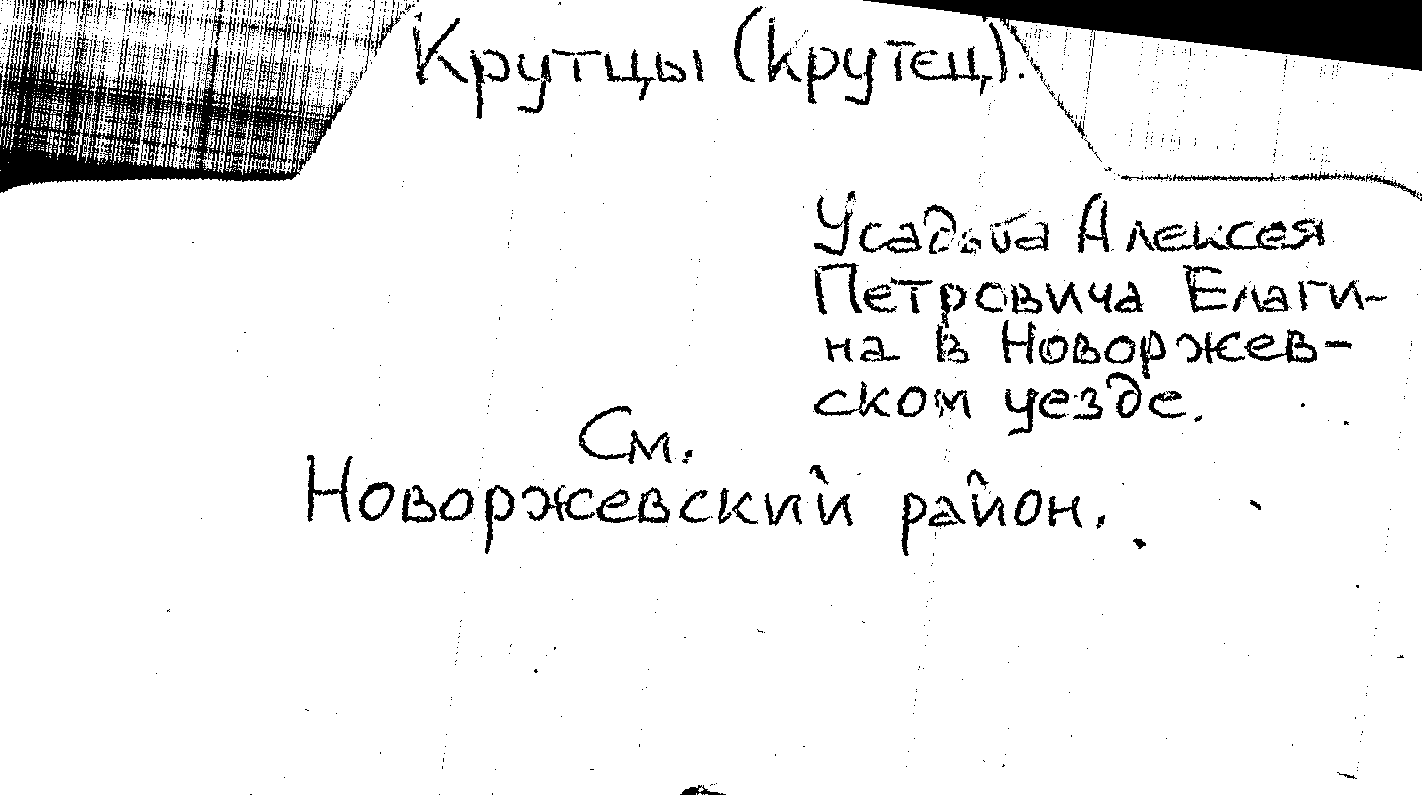 Крутцы (Крутец).
Усадьба Алексея
Петровича Елаги-
на в Новоржев-
ском уезде.
См.
Новоржевский район.